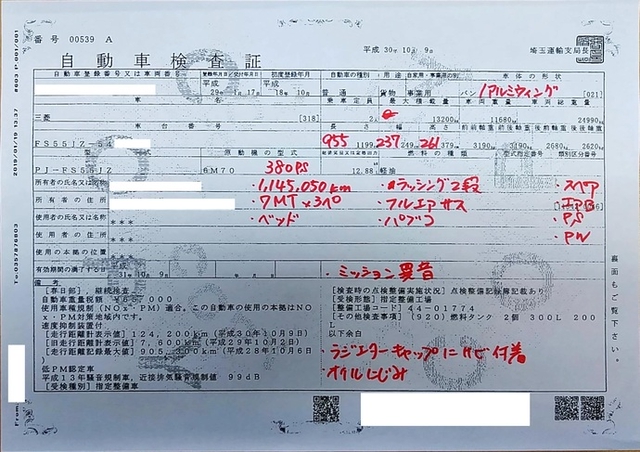 番号 00539 A
平成 30年 10月 9日
埼玉運輸支局長
自動車検査証
自動車登録番号又は車両番号 登録年月日/交付年月日 初度登録年月 自動車の種別 用途 自家用・事業用の別 車体の形状
平成 29年 1月 17日 平成 18年 10月 普通 貨物 事業用 バン アルミウィング [021]
乗車定員 最大積載量 車両重量 車両総重量
三菱 [318] 2 13200 11680 24990
車台番号 長さ 幅 高さ 前前軸重 前後軸重 後前軸重 後後軸重
FS55JZ-54 955 1199 237 249 261 379 3190 3190 2680 2620
原動機の型式 燃料の種類 型式指定番号 類別区分番号
380PS
PJ-FS55JZ 6M70 12.88 軽油
所有者の氏名又は名称
・1,145,050km ・ラッシング2段 ・スペア
所有者の住所
・7MT×3ペ ・フルエアサス
使用者の氏名又は名称 ***
・ベッド ・パブコ ・PS
使用者の住所 ***
・PW
使用の本拠の位置 ***
有効期間の満了する日 平成 31年 10月 9日
・ミッション異音
裏面もご覧下さい。
備考
[春日部] 継続検査
自動車重量税額
使用車種規制(NOx・PM)適合、この自動車の使用の本拠はNO
x・PM対策地域内です。
速度抑制装置付
[走行距離計表示値] 124,200km (平成30年10月9日)
[旧走行距離計表示値] 7,600km (平成29年10月2日)
[走行距離記録最大値] 905, (平成28年10月6日)
低PM認定車
平成13年騒音規制車、近接排気騒音規制値 99dB
[受検種別] 指定整備車
[検査時の点検整備実施状況] 点検整備記録簿記載あり
[受検形態] 指定整備工場
[整備工場コード] 44-01774
[その他検査事項] (920) 燃料タンク 2個 300L 200
L
以下余白
・ラジエターキャップにサビ付着
・オイルにじみ